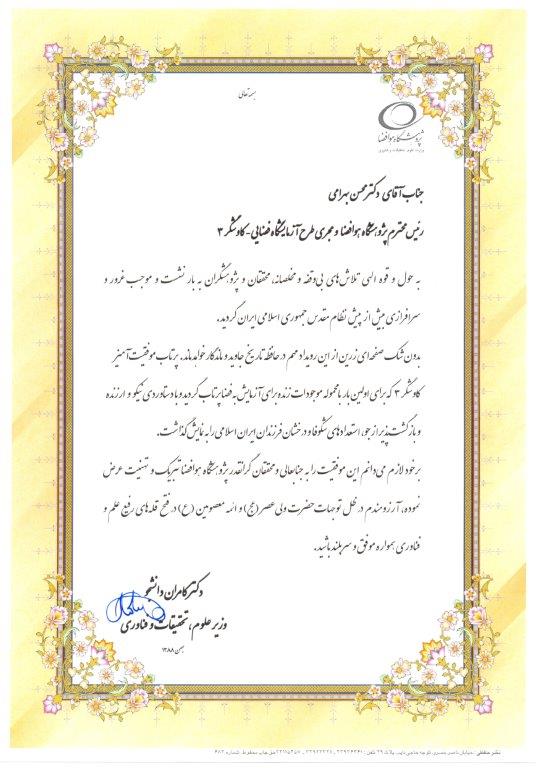 بسمه تعالی
پژوهشگاه هوافضا
وزارت علوم، تحقیقات و فناوری
جناب آقای دکتر محسن بهرامی
رئیس محترم پژوهشگاه هوافضا و مجری طرح آزمایشگاه فضایی - کاوشگر ۳
به حول و قوه الهی تلاش‌های بی‌وقفه و مخلصانه، محققان و پژوهشگران به بار نشست و موجب غرور و
سرافرازی بیش از پیش نظام مقدس جمهوری اسلامی ایران گردید.
بدون شک صفحه‌ای زرین از این رویداد مهم در حافظه تاریخ جاوید و ماندگار خواهد ماند. پرتاب موفقیت آمیز
کاوشگر ۳ که برای اولین بار با محموله موجودات زنده برای آزمایش به فضا پرتاب گردید و با دستاوردی نیکو و ارزنده
و بازگشت پذیر از جو، استعدادهای شکوفا و درخشان فرزندان ایران اسلامی را به نمایش گذاشت.
بر خود لازم می‌دانم این موفقیت را به جنابعالی و محققان گرانقدر پژوهشگاه هوافضا تبریک و تهنیت عرض
نموده، آرزومندم در ظل توجهات حضرت ولی عصر (عج) و ائمه معصومین (ع) در فتح قله‌های رفیع علم و
فناوری همواره موفق و سربلند باشید.
دکتر کامران دانشجو
وزیر علوم، تحقیقات و فناوری
بهمن ۱۳۸۸